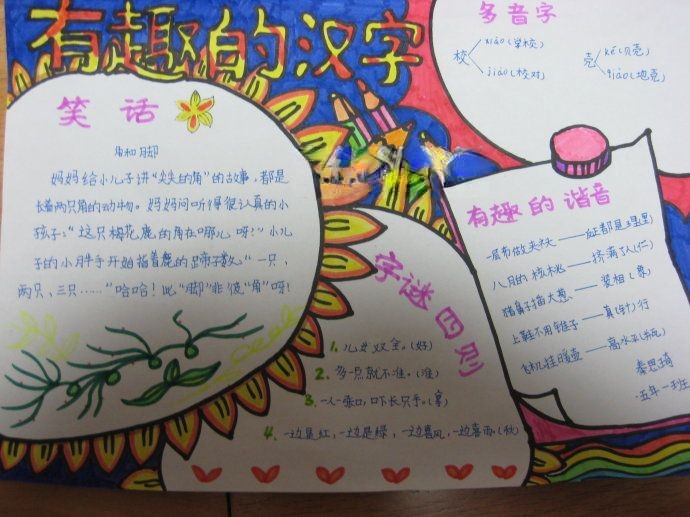 有趣的汉字
笑话
角和脚
妈妈给小儿子讲“尖尖的角”的故事，都是
长着两只角的动物。妈妈问听得很认真的小
孩子：“这只梅花鹿的角在哪儿呀？”小儿
子的小胖手开始指着鹿的蹄子数“一只，
两只，三只……”哈哈！此“脚”非彼“角”呀！
多音字
校 xiào(学校) jiào(校对)
壳 ké(贝壳) qiào(地壳)
字谜四则
1. 儿女双全。(好)
2. 多一点就不准。(淮)
3. 一人一张口，口下长只手。(拿)
4. 一边是红，一边是绿，一边喜风，一边喜雨。(秋)
有趣的谐音
八月的核桃——挤满了人(仁)
猪鼻子插大葱——装相(象)
上鞋不用锥子——真(针)行
飞机挂暖壶——高水平(瓶)
五年一班